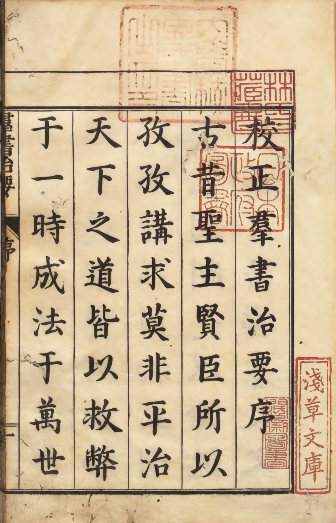 校正羣書治要序
古昔聖主賢臣所以
孜孜講求莫非平治
天下之道皆以救弊
于一時成法于萬世
羣書治要
序
淺草文庫